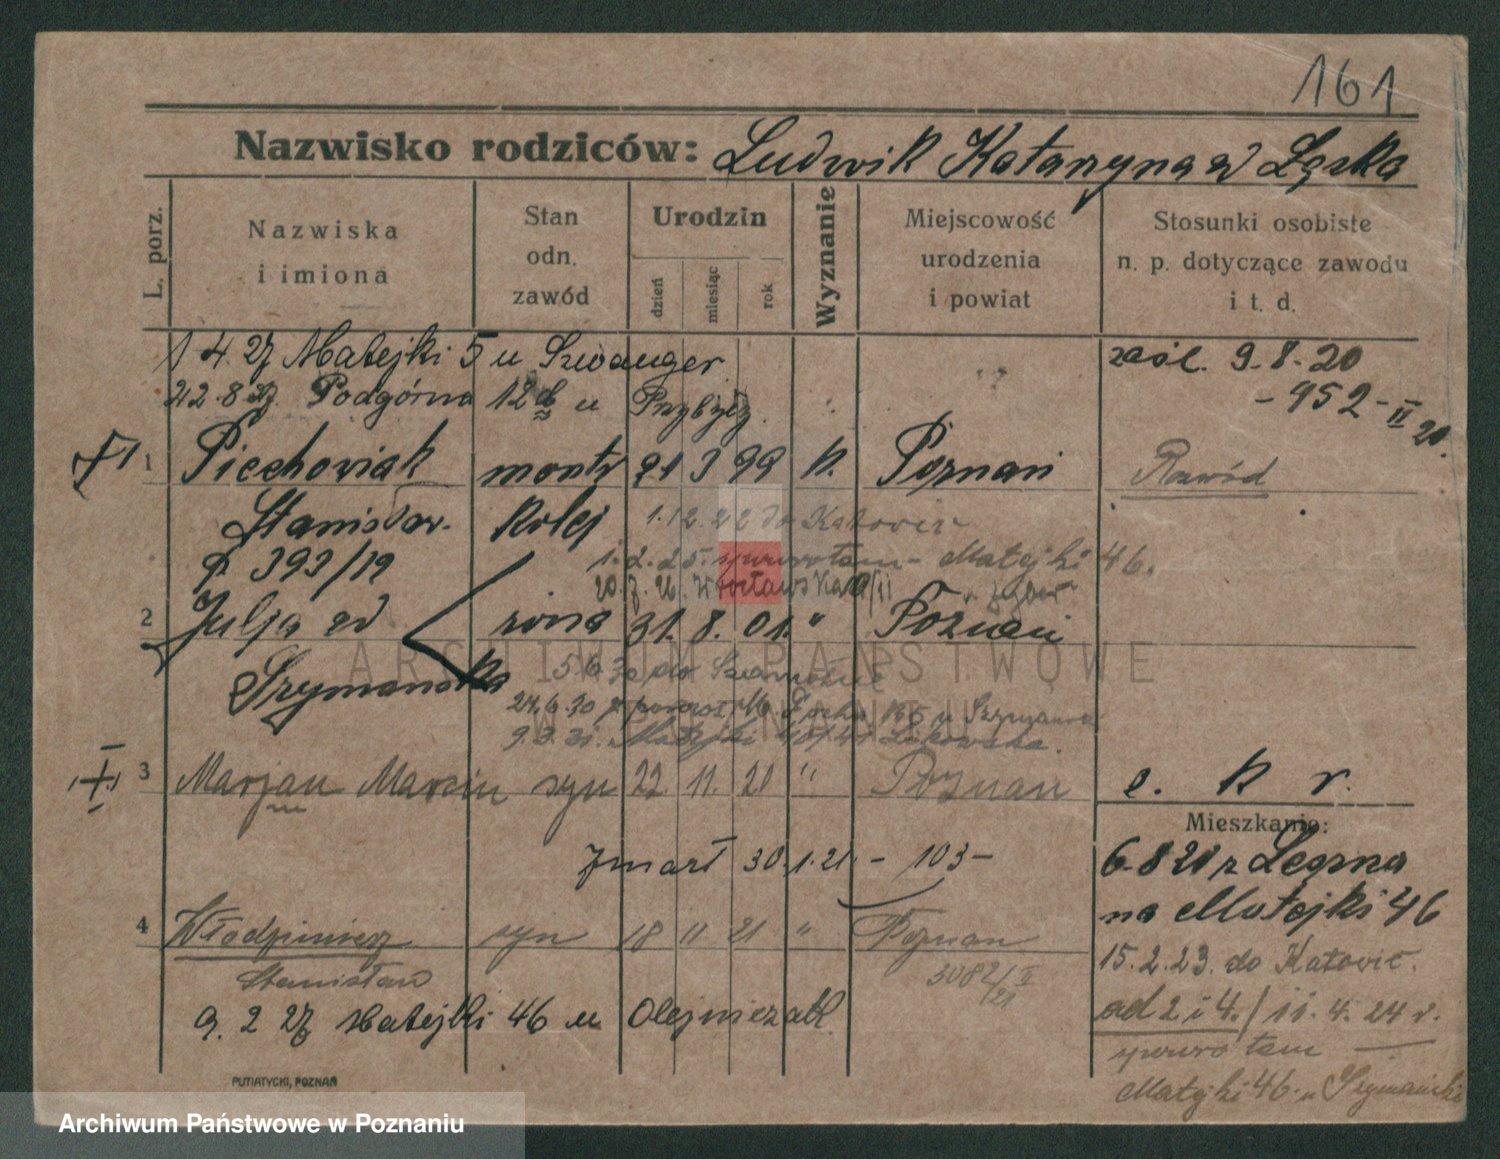 161
Nazwisko rodziców: Ludwik Katarzyna zd Łęska
L. porz.
Nazwiska
i imiona
Stan
odn.
zawód
Urodzin
dzień
miesiąc
rok
Wyznanie
Miejscowość
urodzenia
i powiat
Stosunki osobiste
n. p. dotyczące zawodu
i t. d.
1 4. 27 Matejki 5 u Szwanger
zaśl. 9.8.20
22.8.27. Podgórna 12 u
- 952 - II 20.
1 Piechowiak montr 21 3 99 k. Poznań
Rozwód
Stanisław. kolej 1.12.22 do Katowic
393/19 1.2.25. spowrotem - Matejki 46.
20.7.26. Wrocławska
2 Julja zd żona 31. 8. 01. " Poznań
Szymańska 5 6 30 do
24.6.30 z powrot M. Focha 165 u
9.3.31. Matejki
3 Marjan Marcin syn 22. 11. 20 " Poznań
e. k r.
zmarł 30.1.21 - 103 -
Mieszkanie:
6.8 21 z
na Matejki 46
4 Włodzimierz syn 18 11 21 " Poznan
Stanisław 3082/II
/21
15.2.23. do Katowic.
9. 2 27 Matejki 46 u Olejniczak
ad 2 i 4. / 11. 4. 24 r.
spowrotem
Matejki 46. u Szymański
PUTIATYCKI, POZNAŃ
ARCHIWUM PAŃSTWOWE
W POZNANIU
Archiwum Państwowe w Poznaniu